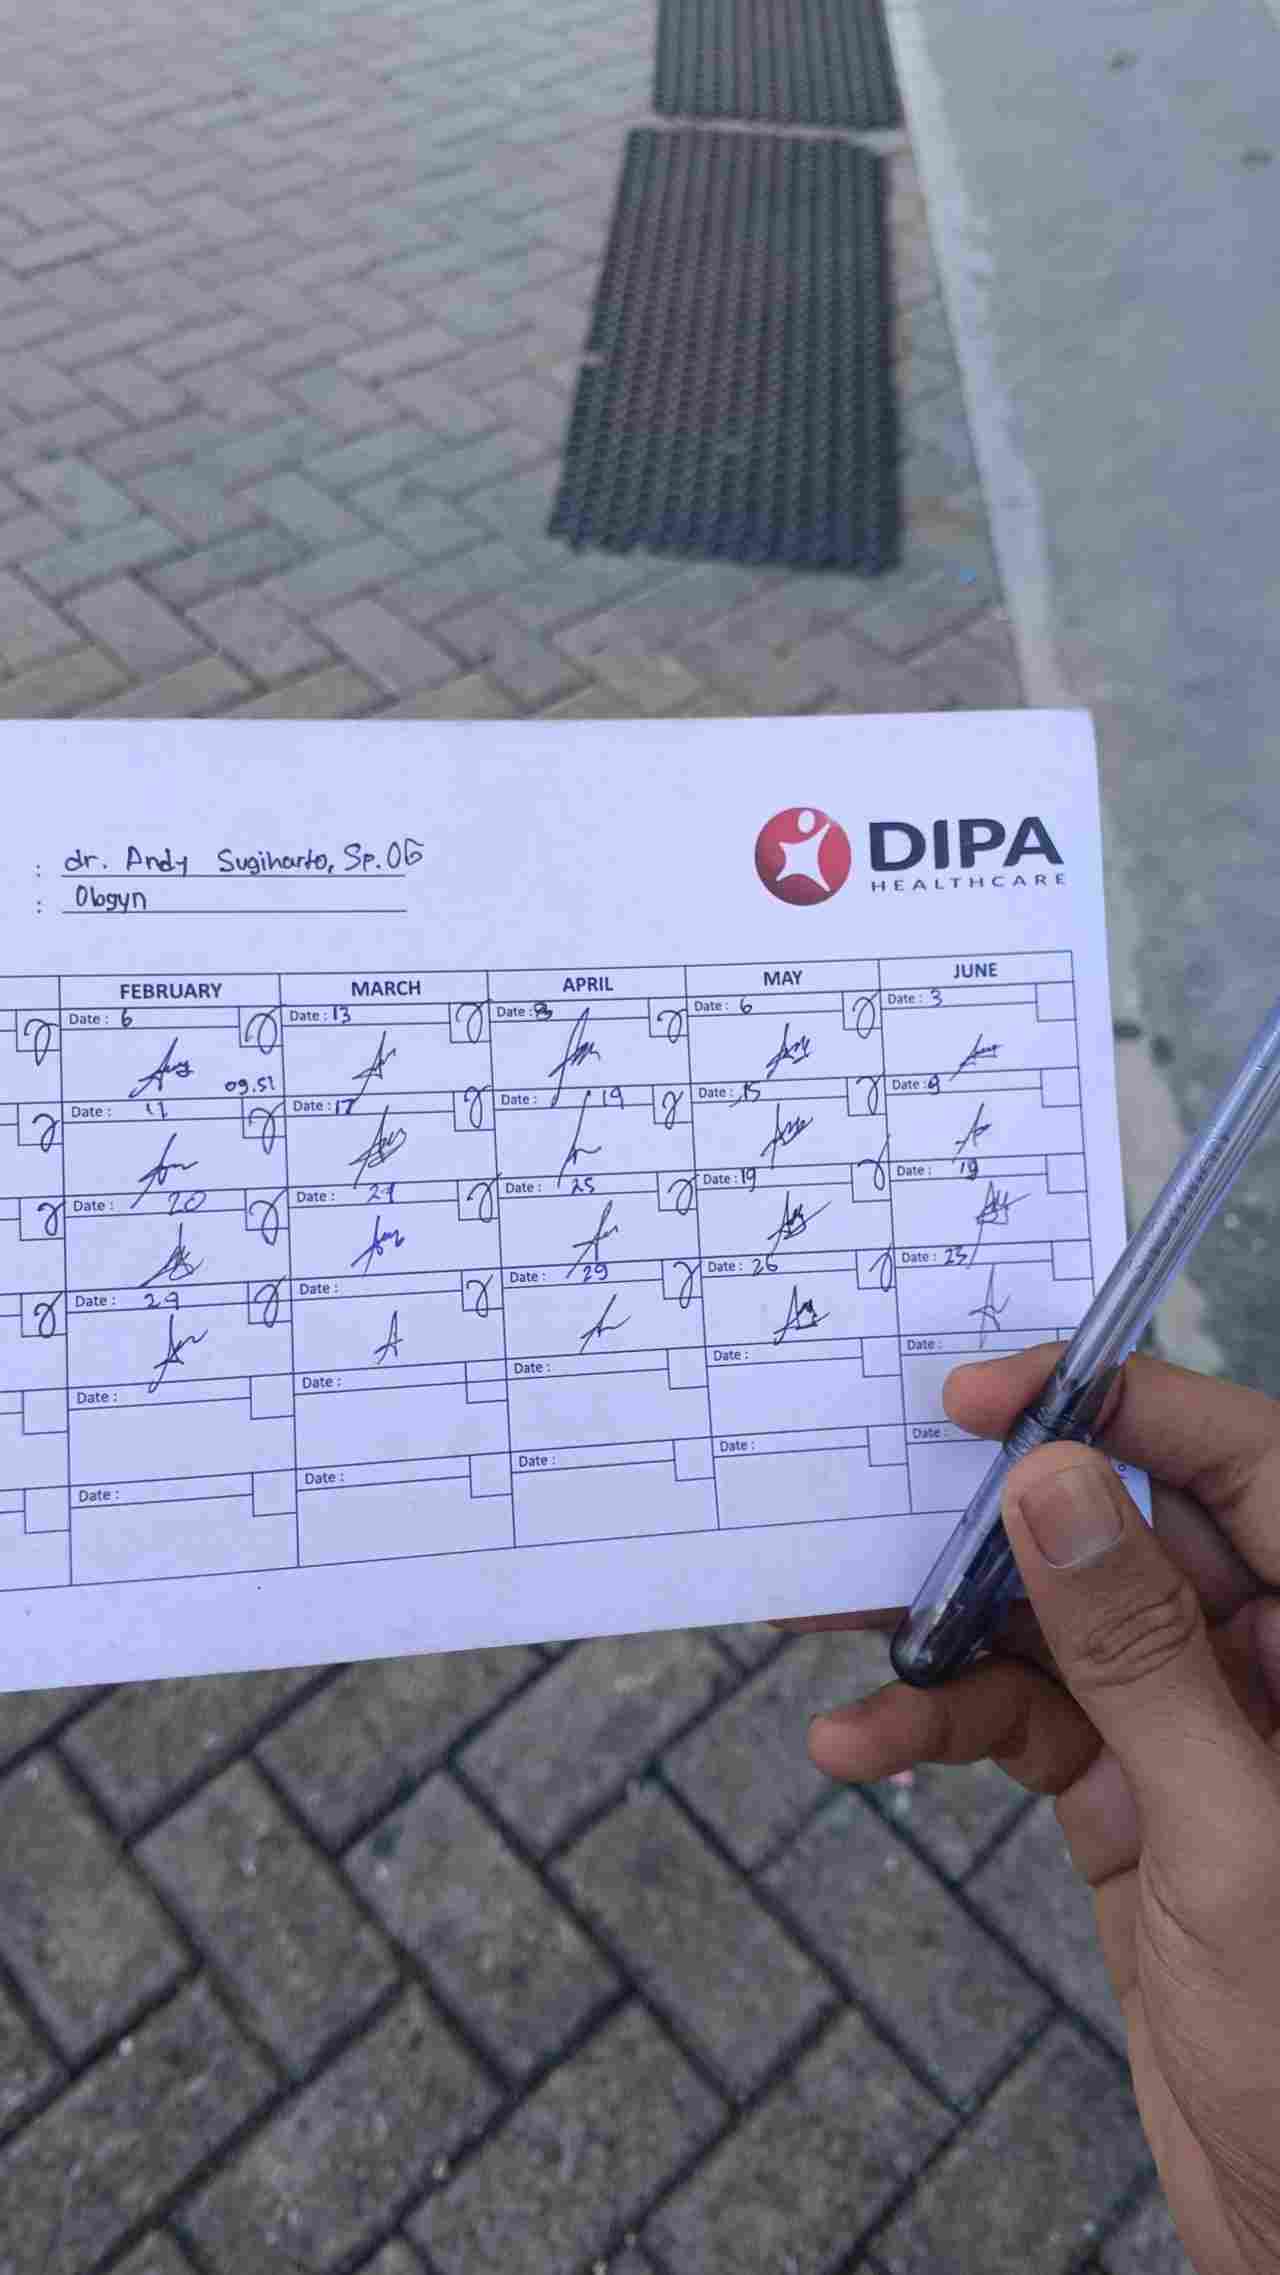 : dr. Andy Sugiharto, Sp.OG
: Obgyn
DIPA
HEALTHCARE
FEBRUARY MARCH APRIL MAY JUNE
Date : 6 Date : 13 Date : Date : 6 Date : 3
09.51
Date : 11 Date : 17 Date : 19 Date : 15 Date : 9
Date : 20 Date : Date : 25 Date : 19 Date : 19
Date : Date : Date : 29 Date : 26 Date : 23
Date : Date : Date : Date : Date :
Date : Date : Date : Date : Date :